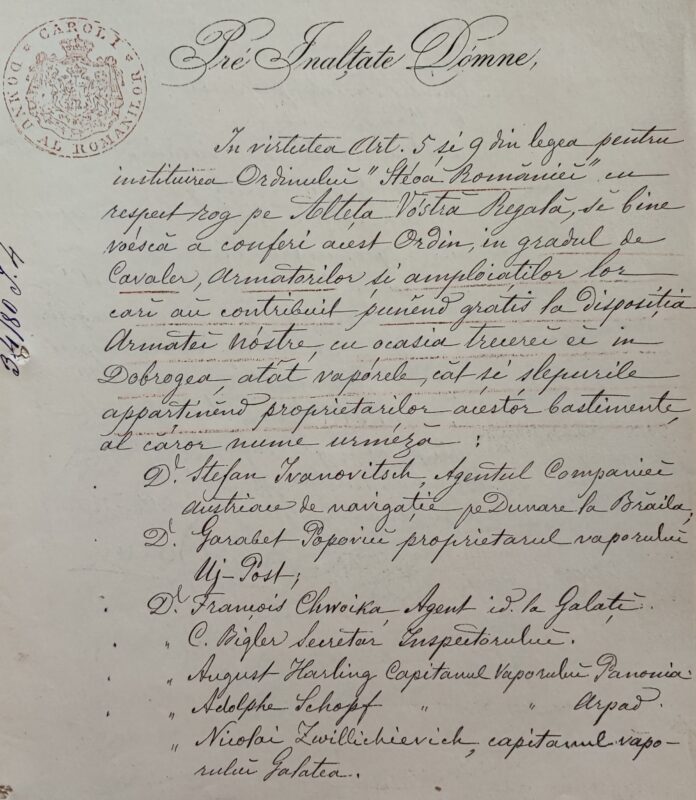 CAROL I
DOMNUL AL ROMANILOR
Pré Inalțate Dómne,
In virtutea Art. 5 și 9 din legea pentru
instituirea Ordinului "Steoa României" cu
respect rog pe Alteța Vóstră Regală, se bine
voéscă a conferi acest Ordin, in gradul de
Cavaler, Armatorilor și amploiaților lor
cari au contribuit punênd gratis la dispoziția
Armatei nóstre, cu ocasia trecerei ei in
Dobrogea, atât vapórele, cât și slepurile
apparținênd proprietarilor acestor bastimente,
al căror nume urméză :
Dl. Stefan Ivanovitsch, Agentul Companiei
austriace de navigație pe Dunare la Brăila,
Dl. Garabet Popovici proprietarul vaporului
Uj-Post;
Dl. François Chwoika, Agent id. la Galați.
" C. Bigler Secretar Inspectorului.
" August Harling Capitanul Vaporului Panonia.
" Adolphe Schopf " " Arpad.
" Nicolai Zwillichievich, capitanul vapo-
rului Galatea.
34/80 J. 4